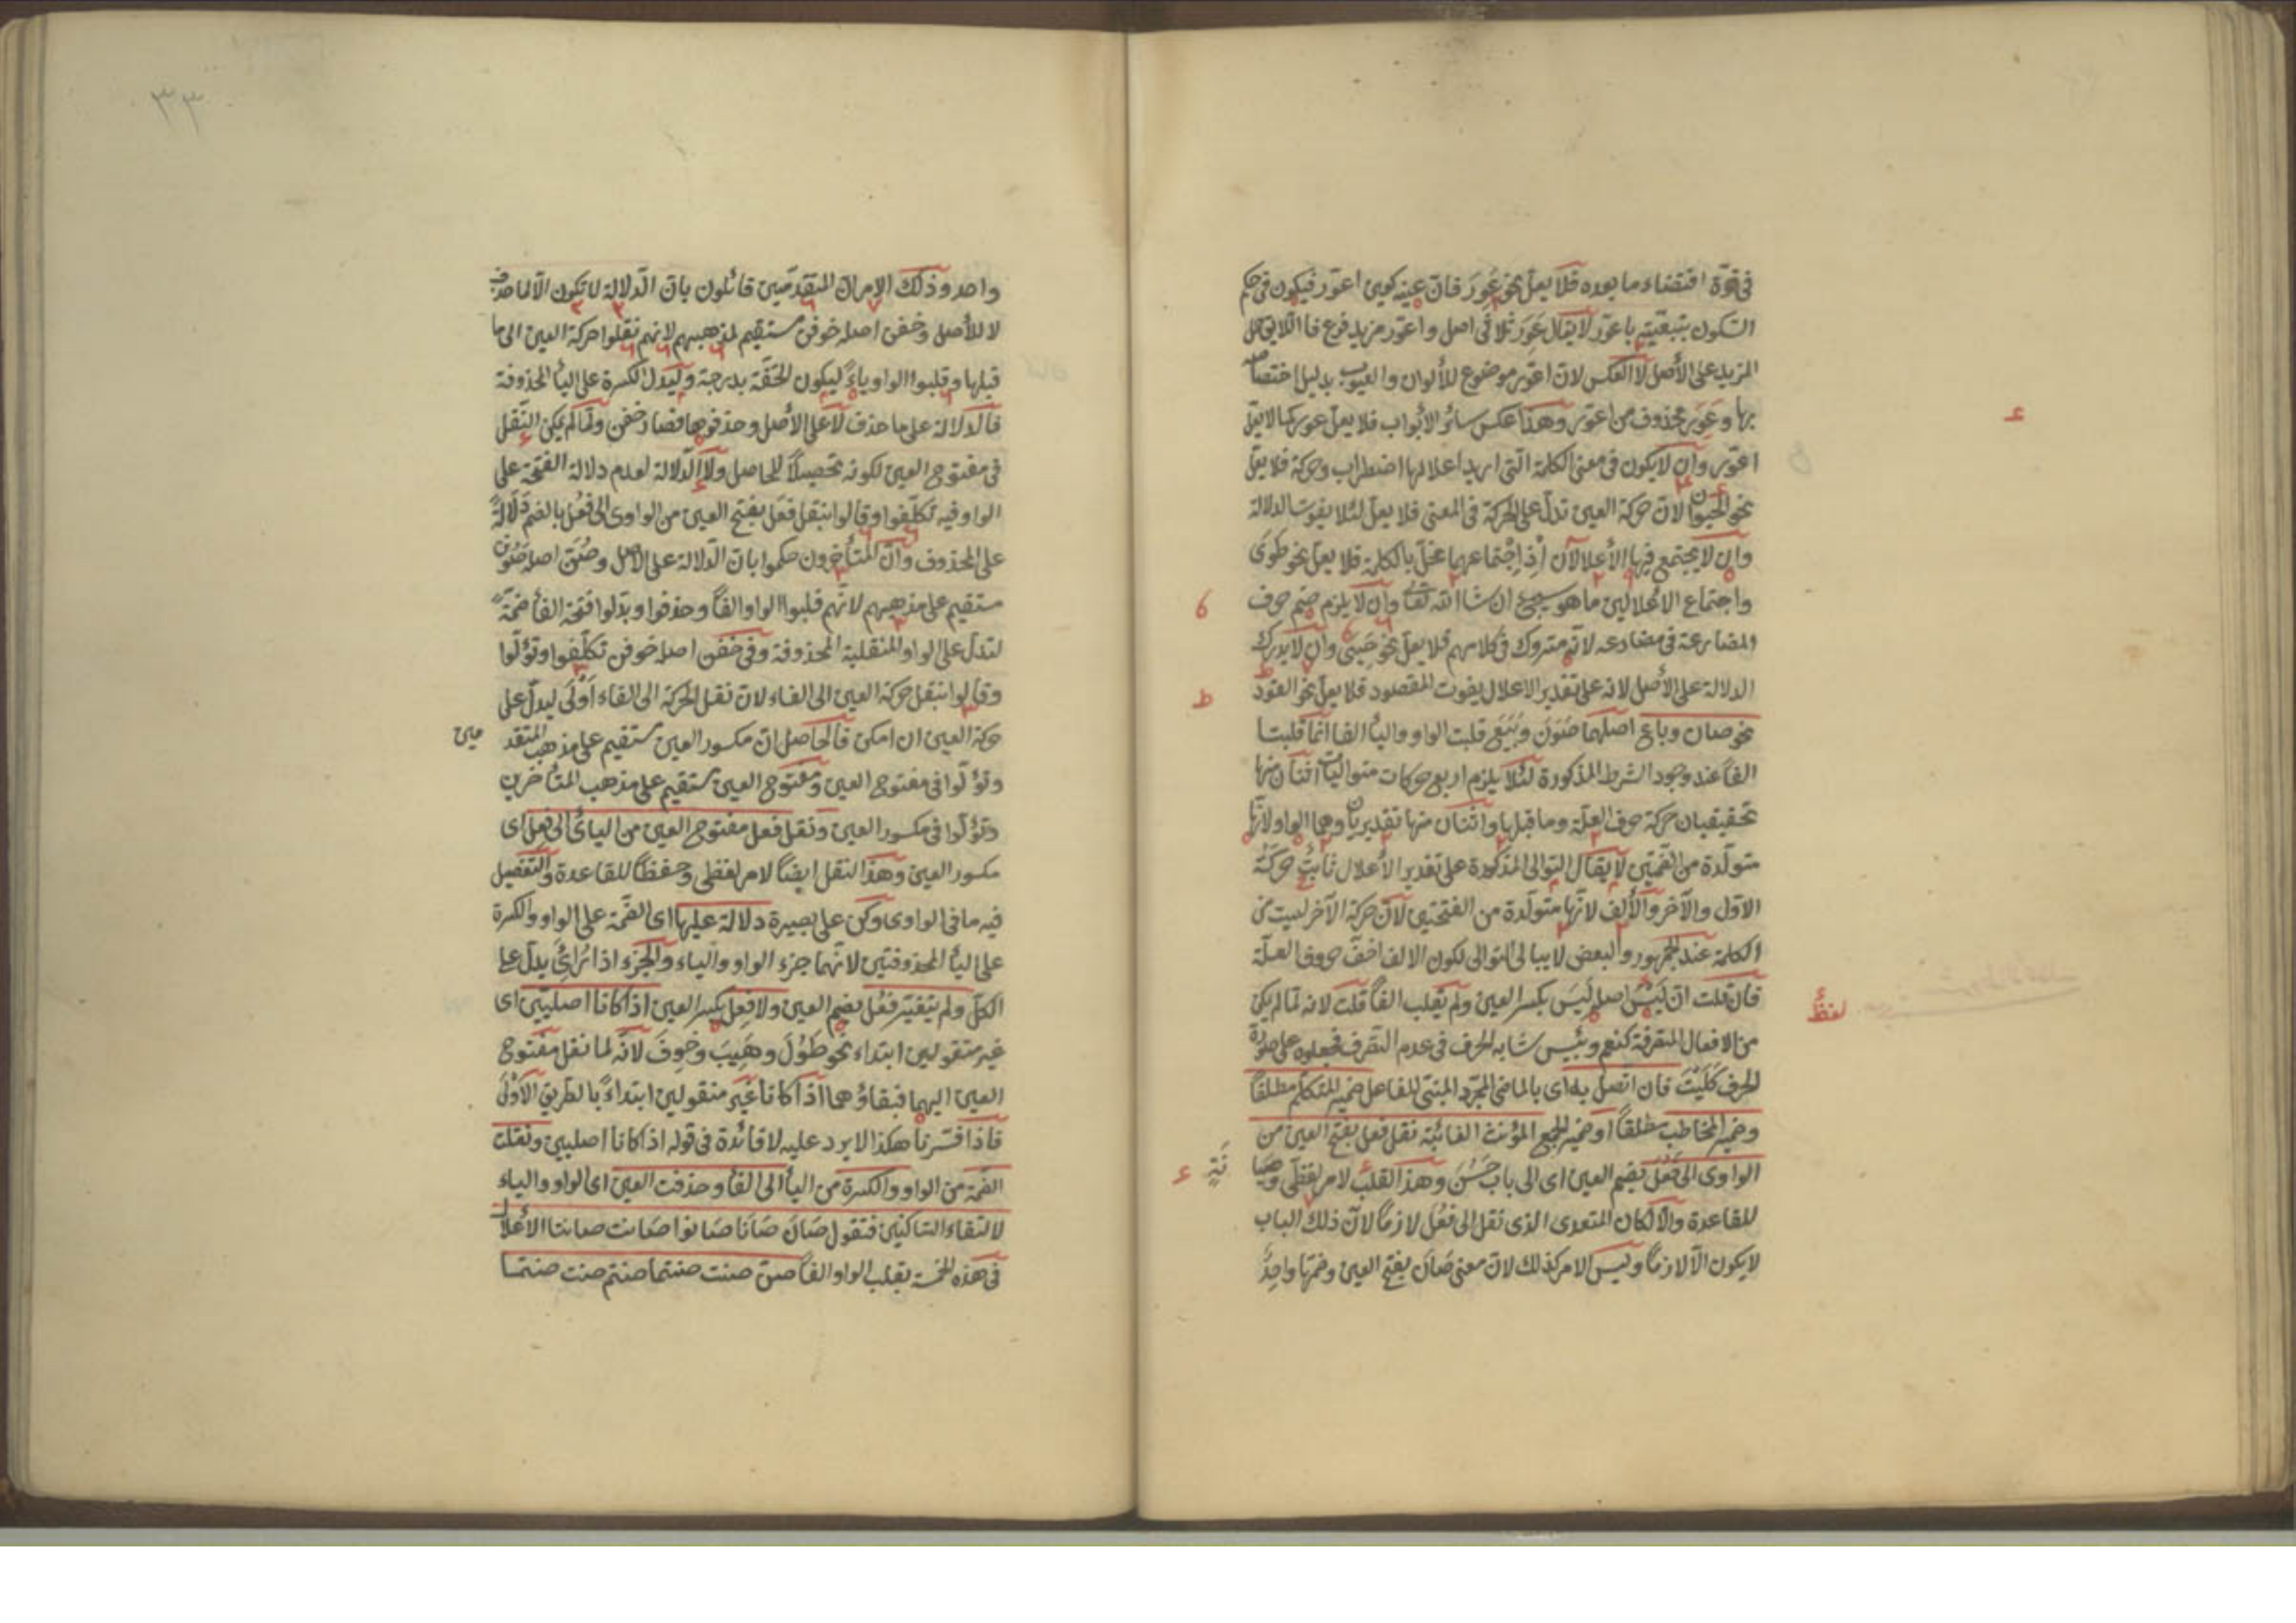 فى قوّة اقتضاء ما بعده فلا يعلّ نحو عَوِرَ فانّ عينه كعين اعوّر فيكون فى حكم
السّكون بتبعيّته باعوّر لا يقال عَوِرَ ثلاثى اصل واعوّر مزيد فرع فاللايق حمل
المزيد على الأصل لا العكس لانّ اعوّر موضوع للألوان والعيوب بدليل اختصاصه
بها وعَوِرَ محذوف من اعوّر وهذا عكس سائر الأبواب فلا يعلّ عور كما لا يعلّ
اعوّر وان لا يكون فى معنى الكلمة الّتى اريد اعلالها اضطراب وحركة فلا يعلّ
نحو الحيوان لانّ حركة العين تدلّ على الحركة فى المعنى فلا يعلّ لئلا يفوت الدلالة
وان لا يجتمع فيها الأعلالان إذ اجتماعهما مخلّ بالكلمة فلا يعلّ نحو طَوَىَ
واجتماع الاعلالين ما هو سيجئ ان شاء الله تعالى وان لا يلزم ضم حرف
المضارعة فى مضارعه لانّه متروك فى كلامهم فلا يعلّ نحو حَيِىَ وان لا يدرك
الدلالة على الأصل لانه على تقدير الاعلال يفوت المقصود فلا يعلّ نحو القود
نحو صان وباع اصلهما صَوَنَ وبَيَعَ قلبت الواو والياء الفا انما قلبتا
الفاً عند وجود الشرط المذكورة لئلا يلزم اربع حركات متواليات اثنان منها
تحقيقيان حركة حرف العلّة وما قبلها واثنان منها تقديريان وهما الواو لانّها
متولّدة من الضّمّتين لا يقال التوالى المذكورة على تقدير الأعلال ثابت حركة
الاوّل والآخر والألف لانّها متولّدة من الفتحتين لانّ حركة الآخر ليست من
الكلمة عند الجمهور والبعض لا يبالى التوالى لكون الالف اخفّ حروف العلّة
فان قلت انّ لَيْسَ اصله لَيِسَ بكسر العين ولم يقلب الفاً قلت لانه لمّا لم يكن
من الافعال المتصرفة كنعم وبئس شابه الحرف فى عدم التصرف فجعلوه على صورة
الحرف كَلَيْتَ فان اتصل به اى بالماضى المجرّد المبنى للفاعل ضمير المتكلم مطلقاً
وضمير المخاطب مطلقاً او ضمير الجمع المؤنث الغائبة نقل فعل بفتح العين من
الواوى الى فَعُلَ بضم العين اى الى باب حَسُنَ وهذا القلب لامر لفظى وحفظا
للقاعدة والّا لكان المتعدى الذى نقل الى فَعُلَ لازماً لانّ ذلك الباب
لا يكون الّا لازماً وليس الامر كذلك لانّ معنى صَانَ بفتح العين وضمّها واحدٌ
لفظ
ط
٣٣
واحد وذلك الامر انّ المتقدّمين قائلون بانّ الدّلالة لا تكون الّا لما حذف
لا للأصل وخفن اصله خوفن مستقيم لمذهبهم لانهم نقلوا حركة العين الى ما
قبلها وقلبوا الواو ياءً ليكون الخفّة بدرجة وليدلّ الكسرة على الياء المحذوفة
فالدلالة على ما حذف لا على الأصل وحذفوها فصار خفن ولمّا لم يكن النّقل
فى مفتوح العين لكونه تحصيلاً للحاصل ولا الدّلالة لعدم دلالة الفتحة على
الواو فيه تكلّفوا وقالوا ننقل فَعَلَ بفتح العين من الواوى الى فَعُلَ بالضم دلالةً
على المحذوف وانّ المتأخرون حكموا بانّ الدّلالة على الاصل وصُنَّ اصله صَوَنَ
مستقيم على مذهبهم لانّهم قلبوا الواو الفاً وحذفوا وبدّلوا فتحة الفاء ضمّةً
لتدلّ على الواو المنقلبة المحذوفة وفى خفن اصله خوفن تكلّفوا وتؤلّوا
وقالوا ننقل حركة العين الى الفاء لانّ نقل الحركة الى الفاء اَوْلَى ليدلّ على
حركة العين ان امكن فالحاصل انّ مكسور العين مستقيم على مذهب المتقد مين
وتؤلّوا فى مفتوح العين ومفتوح العين مستقيم على مذهب المتأخرين
وتؤلّوا فى مكسور العين ونقل فعل مفتوح العين من اليائى الى فَعِلَ اى
مكسور العين وهذا النقل ايضاً لامر لفظى وحفظاً للقاعدة والتفصيل
فيه ما فى الواوى وكن على بصيرة دلالة عليها اى الضّمّة على الواو والكسرة
على الياء المحذوفتين لانّهما جزء الواو والياء والجزء اذا تُرِائَ يدلّ على
الكلّ ولم يتغيّر فَعُلَ بضم العين ولا فَعِلَ بكسر العين اذا كانا اصليّين اى
غير منقولين ابتداء نحو طَوُلَ وهَيِبَ وخَوِفَ لانّه لما نقل مفتوح
العين اليهما فبقاؤهما اذا كانا غير منقولين ابتداءً بالطريق الأولى
فاذا فسّرنا هكذا لا يرد عليه لا فائدة فى قوله اذا كانا اصليين ونقلت
الضّمّة من الواو والكسرة من الياء الى الفاء وحذفت العين اى الواو والياء
لالتقاء السّاكنين فتقول صَانَ صَانَا صَانوا صَانت صانتا الأعلال
فى هذه الخمسة بقلب الواو الفاً صنّ صنت صنتما صنتم صنت صنتما